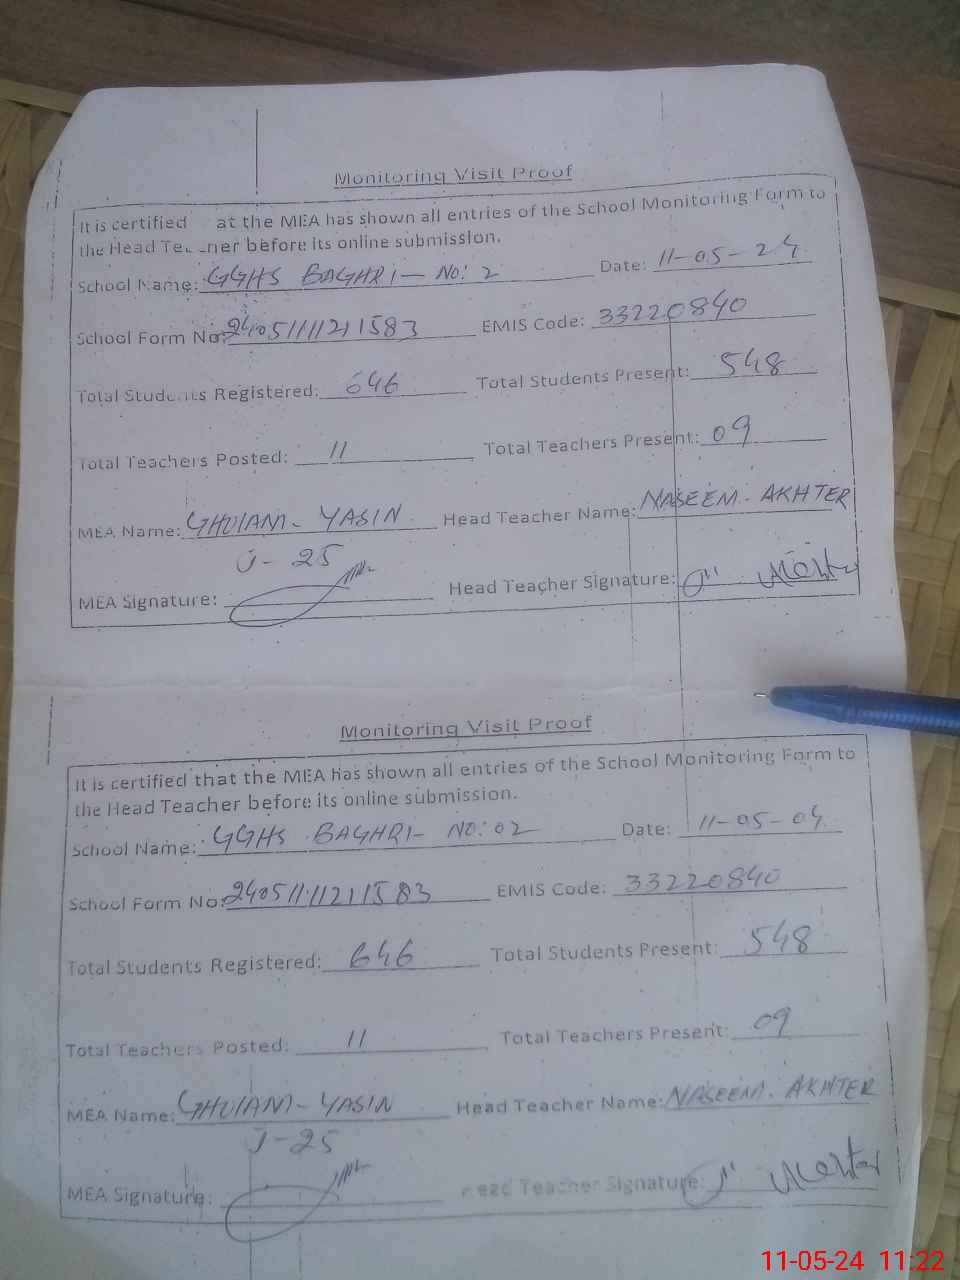 Monitoring Visit Proof
It is certified at the MEA has shown all entries of the School Monitoring Form to
the Head Teacher before its online submission.
School Name: GGHS BAGHRI - No: 2 Date: 11-05-24
School Form No: 2405111121 1583 EMIS Code: 33220840
Total Students Registered: 646 Total Students Present: 548
Total Teachers Posted: 11 Total Teachers Present: 09
MEA Name: GHULAM - YASIN Head Teacher Name: NASEEM. AKHTER
J-25
MEA Signature: Head Teacher Signature:
Monitoring Visit Proof
It is certified that the MEA has shown all entries of the School Monitoring Form to
the Head Teacher before its online submission.
School Name: GGHS BAGHRI - NO: 02 Date: 11-05-04
School Form No: 2405111121 1583 EMIS Code: 33220840
Total Students Registered: 646 Total Students Present: 548
Total Teachers Posted: 11 Total Teachers Present: 09
MEA Name: GHULAM - YASIN Head Teacher Name: NASEEM. AKHTER
J-25
MEA Signature: Head Teacher Signature:
11-05-24 11:22